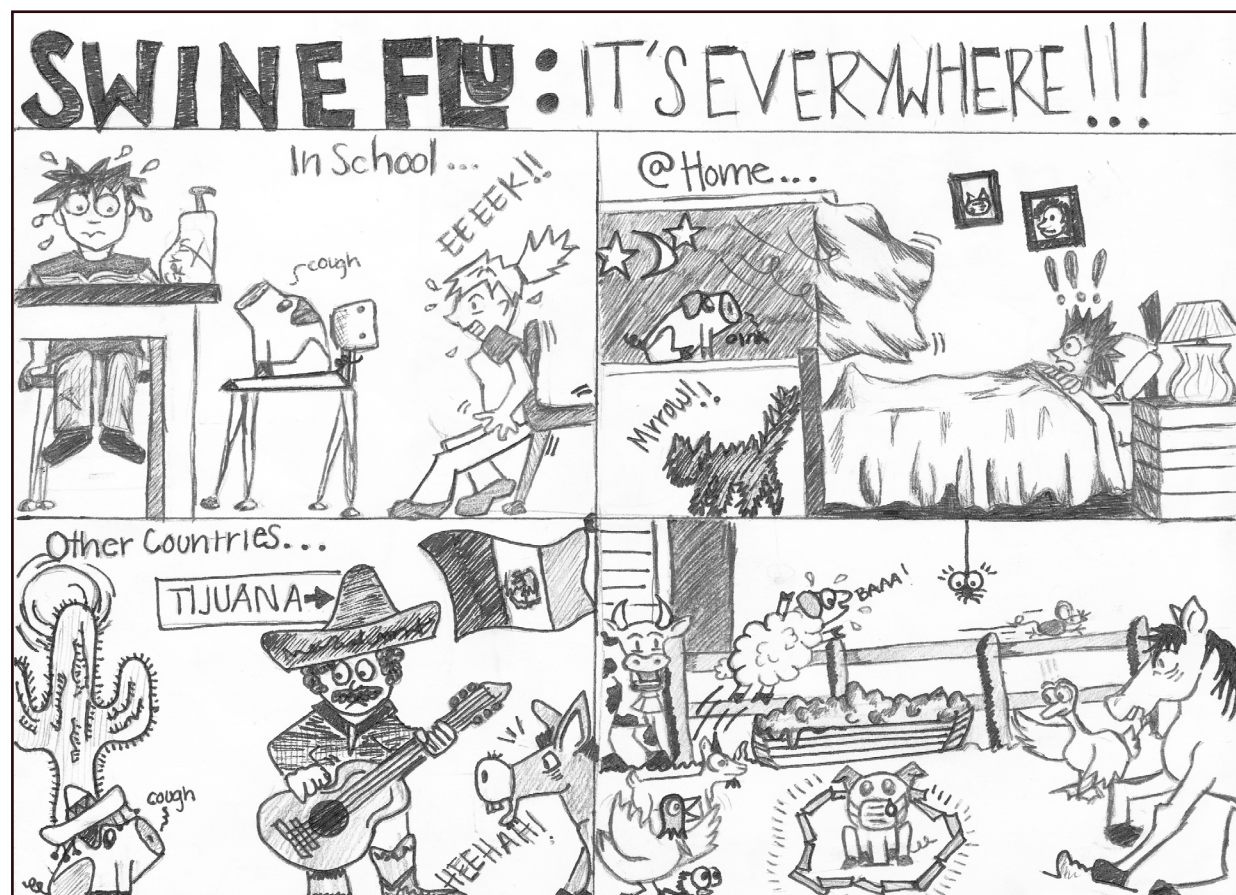 SWINE FLU: IT'S EVERYWHERE!!!
In School...
EEEEK!!
cough
@ Home...
oink
Mrrow!!
Other Countries...
TIJUANA
cough
HEEHAH!
BAAA!